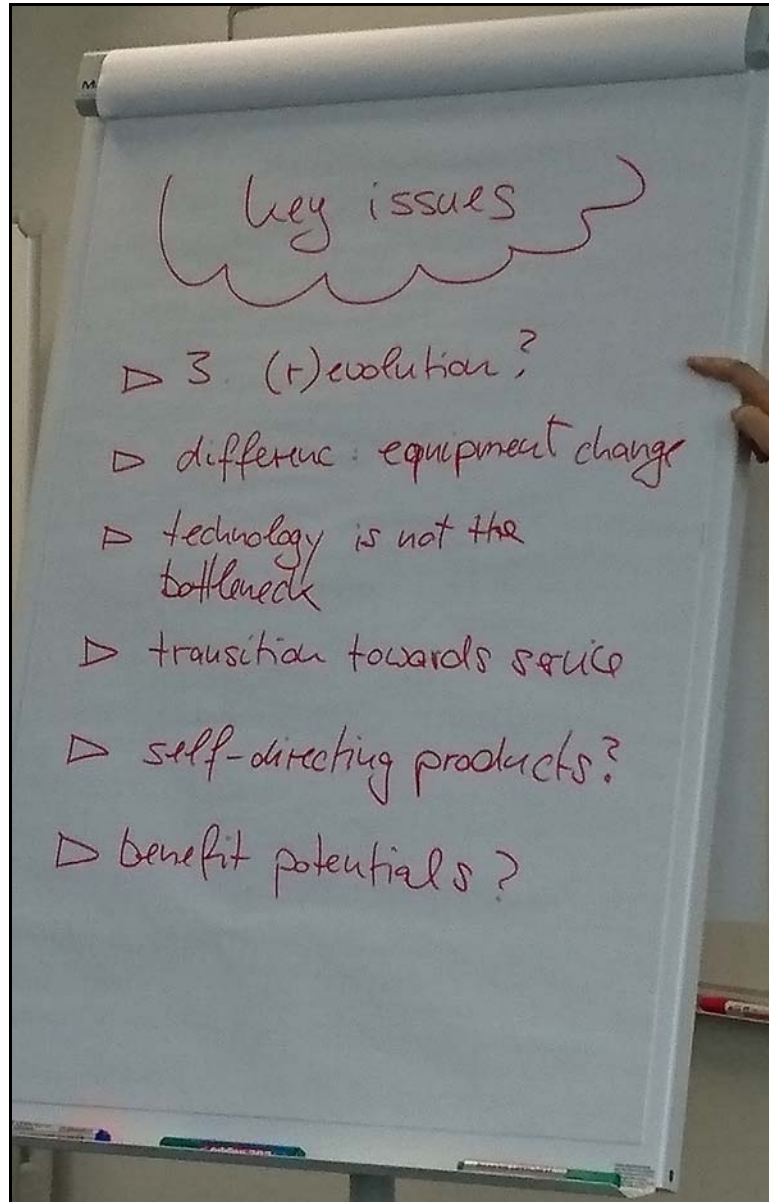 key issues
▷ 3. (r)evolution?
▷ differenc : equipment change
▷ technology is not the
bottleneck
▷ transition towards service
▷ self-directing products?
▷ benefit potentials?